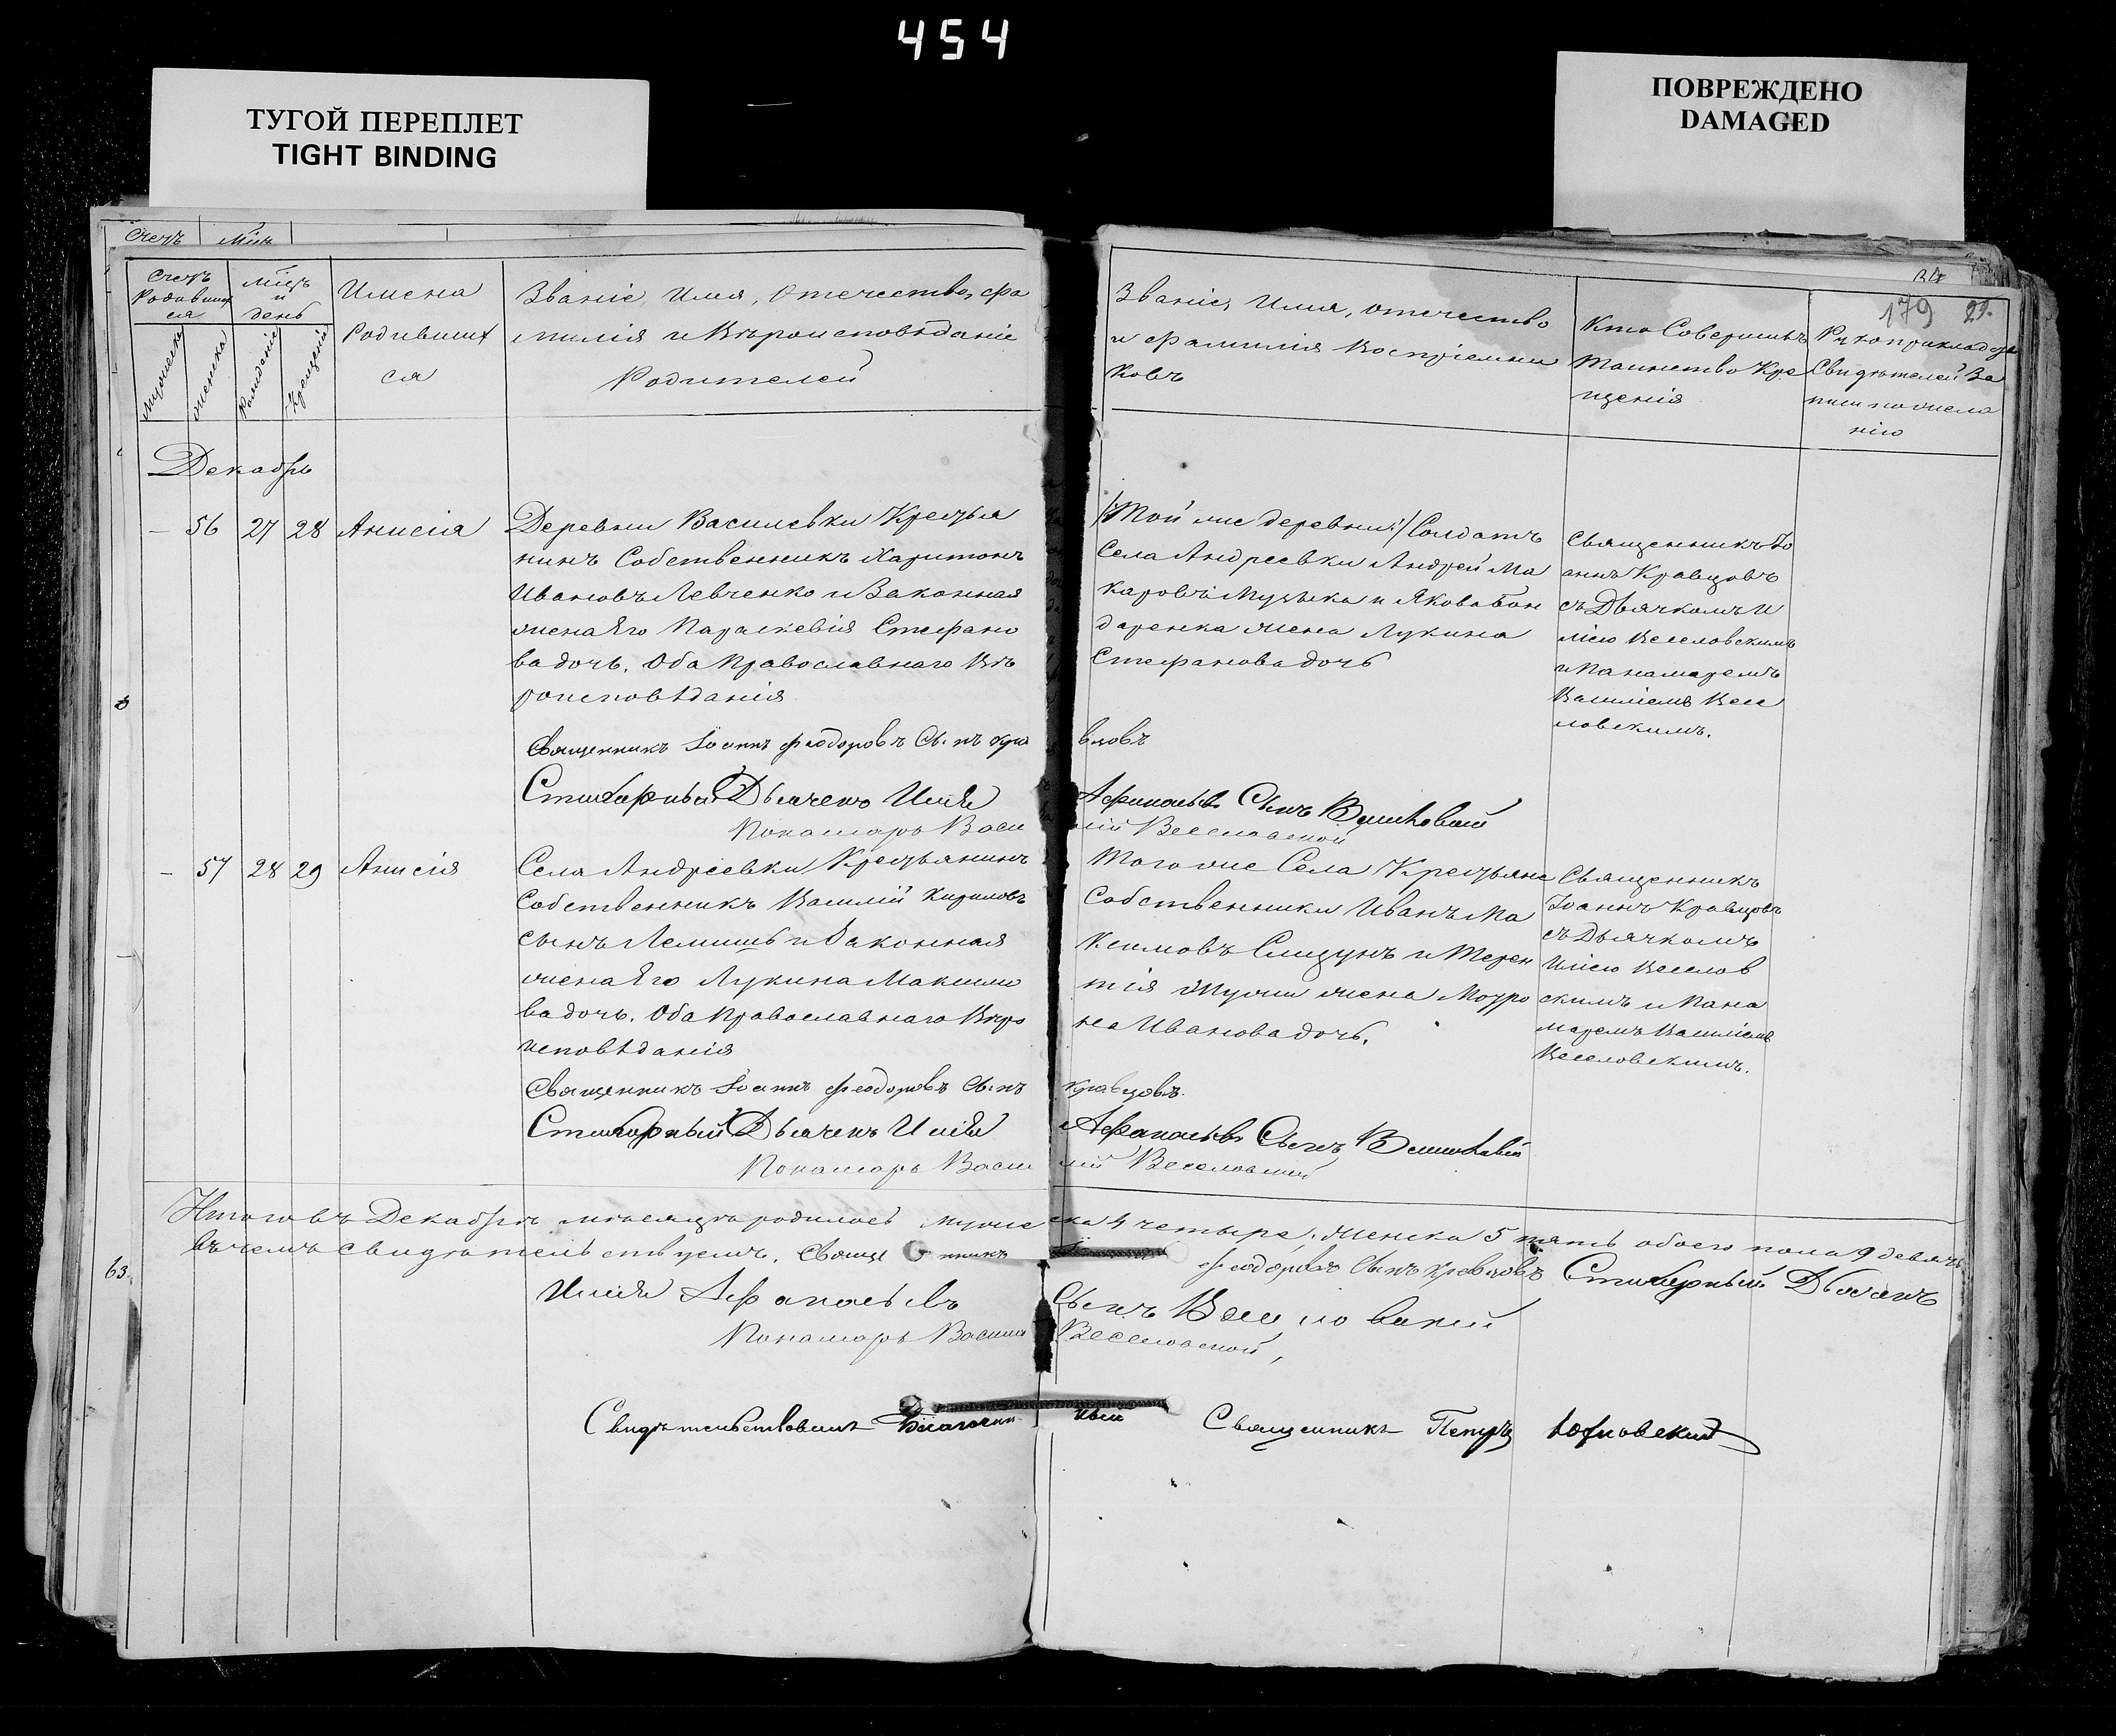 454
ТУГОЙ ПЕРЕПЛЕТ
TIGHT BINDING
ПОВРЕЖДЕНО
DAMAGED
Счетъ
179 29.
Счетъ
Родивших
ся
мѣсъ
и
день
мужеска
женска
Рожденіе
Крещеніе
Имена
Родивших
ся
Званіе, Имя, Отечество, фа
милія и Вѣроисповѣданіе
Родителей
Званіе, Имя, отечество
и фамилія Воспріемни
ковъ
Кто Совершилъ
Таинство Кре
щенія
Свидѣтелей За
Декабрь
— 56 27 28 Анисія
Деревни Василевки Крестья
нинъ Собственникъ Харитонъ
Ивановъ Левченко и Законная
жена Его Параскевія Стефано
ва дочь. Оба Православнаго Вѣ
роисповѣданія
/:Той же деревни:/ Солдатъ
Села Андреевки Андрей Ма
каровъ Музыка и Якова Бон
даренка жена Лукина
Стефанова дочь
Священникъ Іо
аннъ Кравцовъ
съ Дьячкомъ И
ліею Веселовскимъ
и Панамаремъ
Василіемъ Весе
ловскимъ.
Священникъ Іоаннъ Феодоровъ Сынъ Кра вцовъ
Стихарный Дьячекъ Илія Афанасьевъ Сынъ Веселовскій
Понамарь Васи лій Веселовской
— 57 28 29 Анисія
Села Андреевки Крестьянинъ
Собственникъ Василій Кириловъ
сынъ Лемишъ и Законная
жена Его Лукина Максимо
ва дочь. Оба Православнаго Вѣро
исповѣданія
Того же Села Крестьяне
Собственники Иванъ Ма
ксимовъ Слизунъ и Терен
тія жена Мотро
на Иванова дочь.
Священникъ
Іоаннъ Кравцовъ
съ Дьячкомъ
Иліею Веселов
скимъ и Пана
маремъ Василіемъ
Веселовскимъ.
Священникъ Іоаннъ Феодоровъ Сынъ Кравцовъ.
Стихарный Дьячекъ Илія Афанасьевъ Сынъ Веселовскій
Понамарь Васи лій Веселовской
Итого въ Декабрѣ мѣсяцѣ родилось муже ска 4 четыре, женска 5 пять обоего пола 9 девять
въ чемъ свидѣтельствуемъ. Священникъ Феодоровъ Сынъ Кравцовъ Стихарный Дьячекъ
63
Илія Афанасьевъ Сынъ Веселовскій
Понамарь Васили Веселовской,
Свидѣтельствовалъ Благочинный Священникъ Петръ